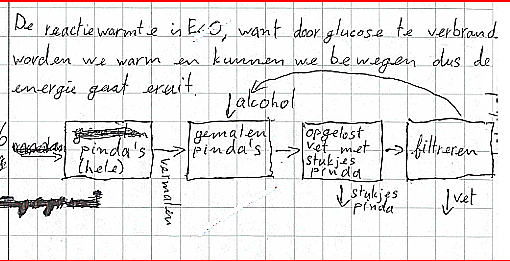 De reactiewarmte is E<0, want door glucose te verbrand
worden we warm en kunnen we bewegen dus de
energie gaat eruit.
alcohol
pinda's
(hele)
vermalen
gemalen
pinda's
opgelost
vet met
stukjes
pinda
filtreren
stukjes
pinda
vet